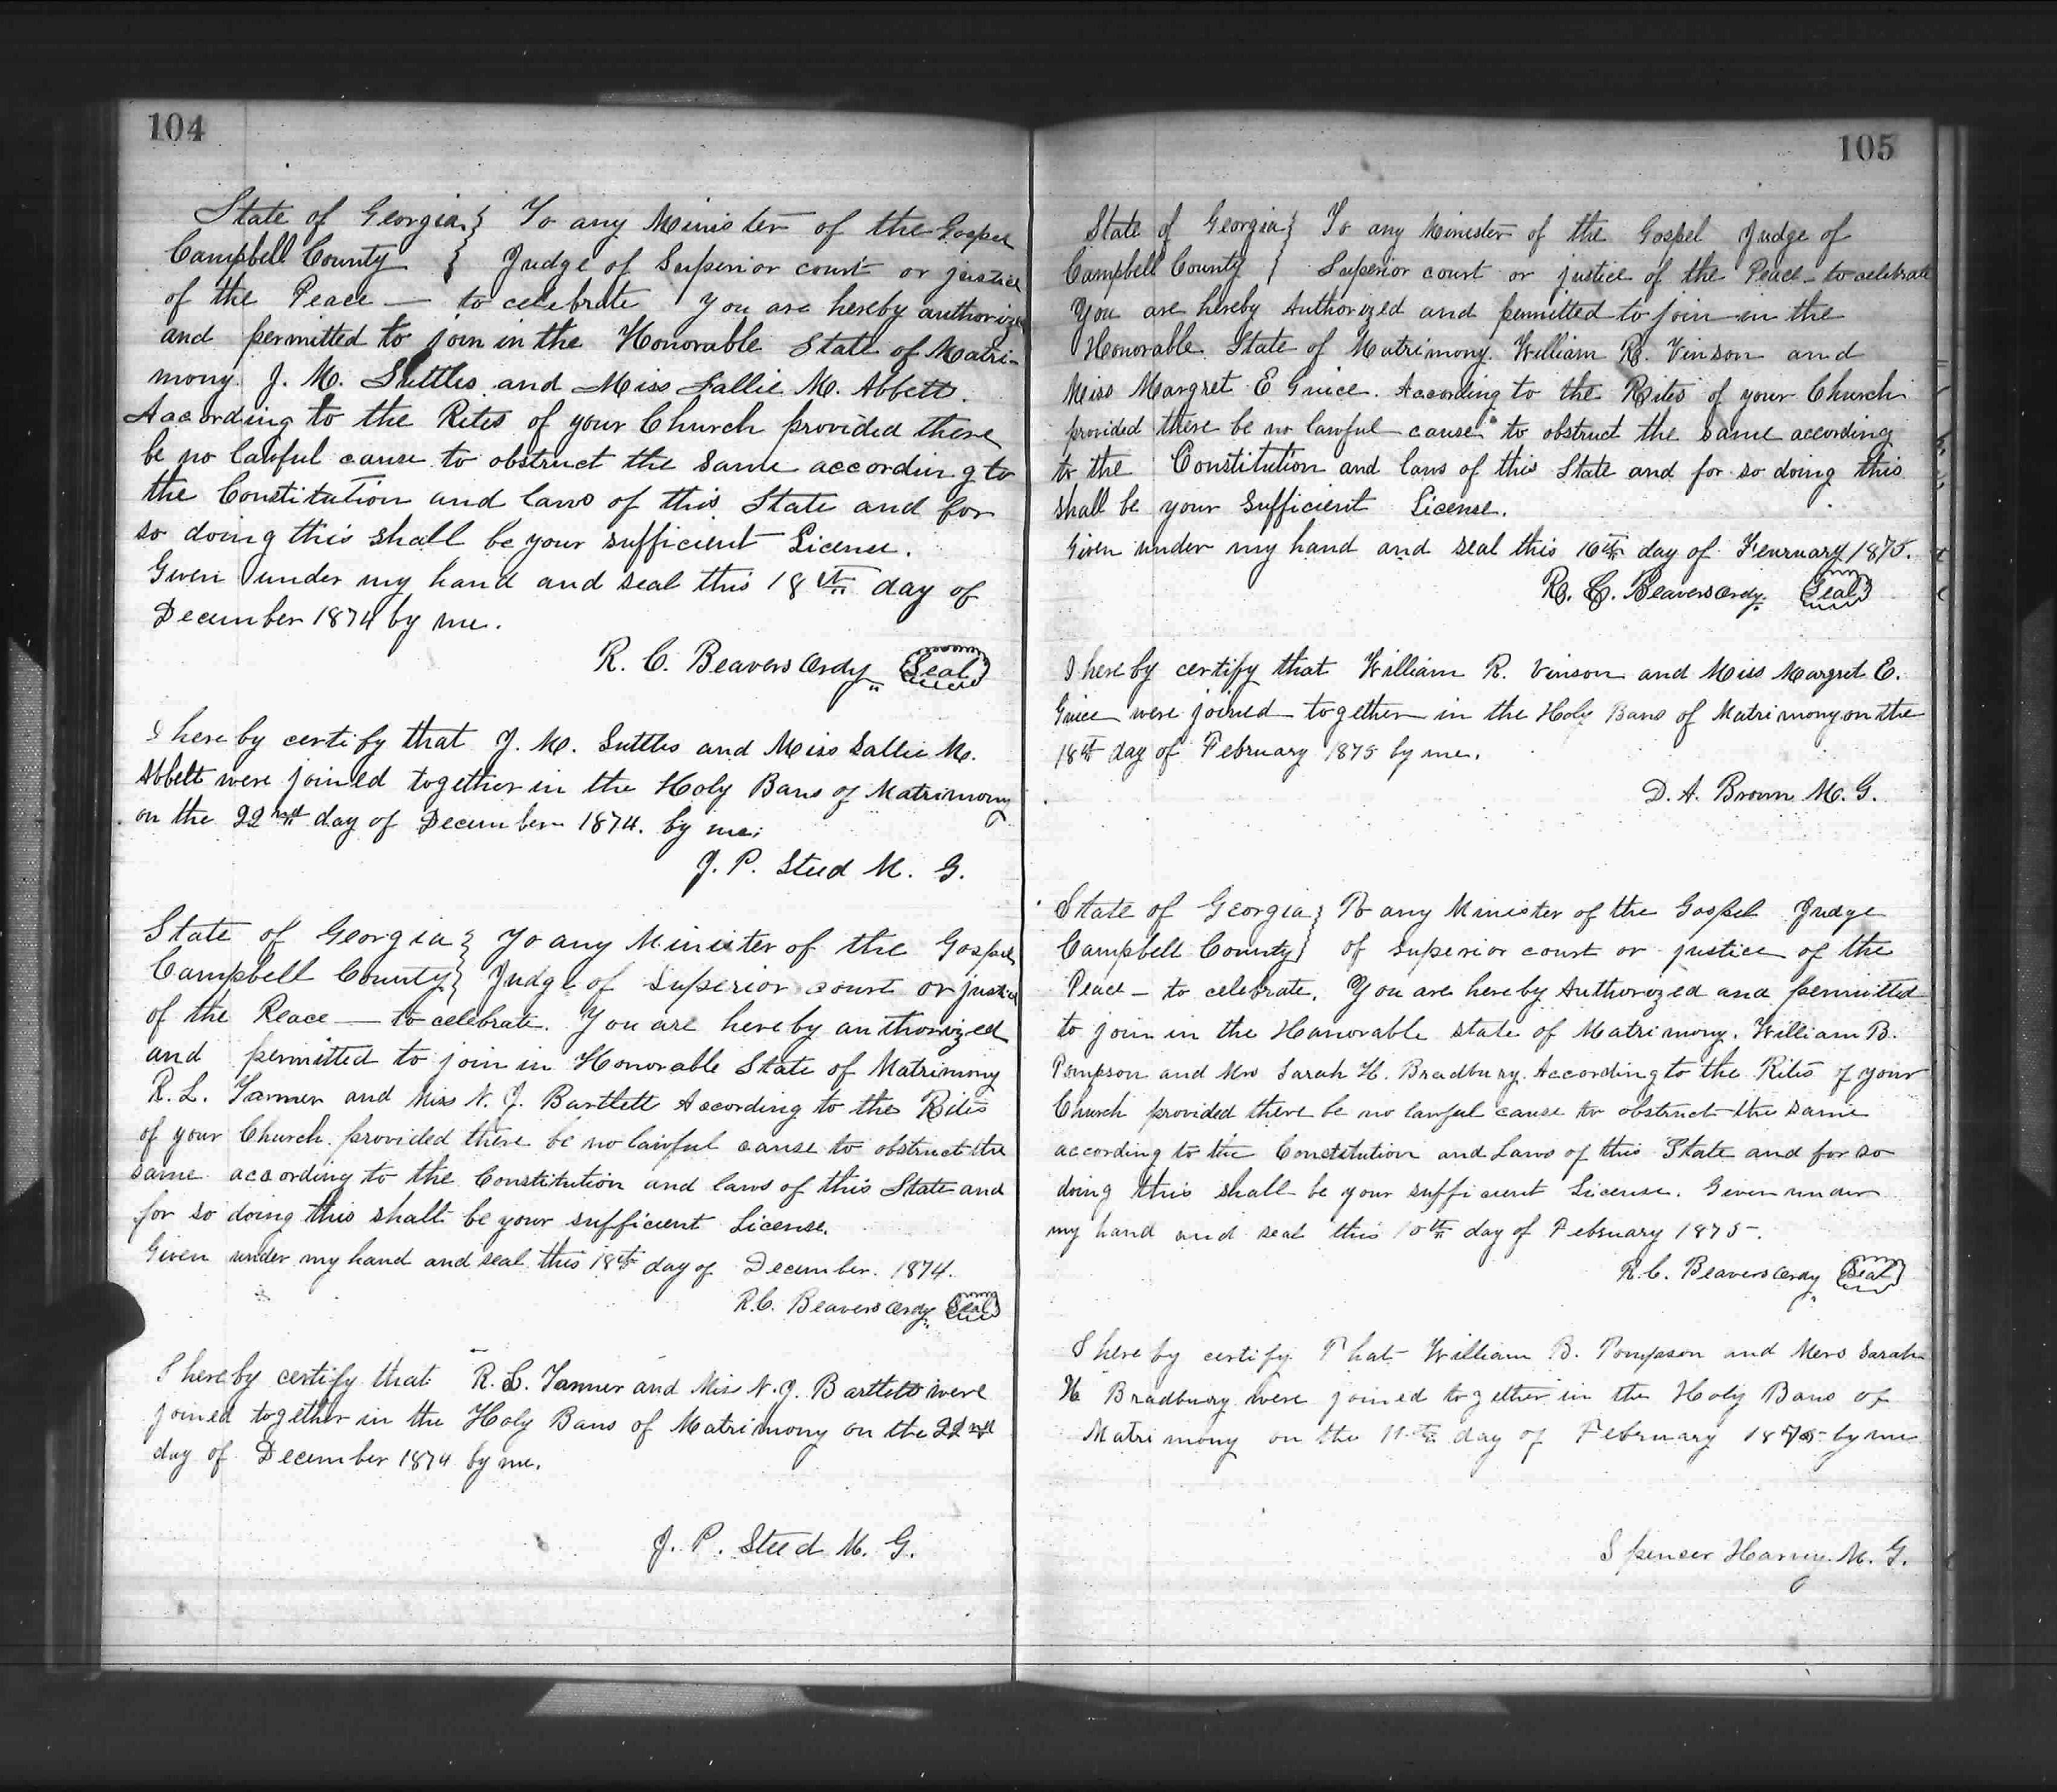 104
State of Georgia } To any Minister of the Gospel
Campbell County } Judge of Superior court or justice
of the Peace — to celebrate You are hereby authorize
and permitted to join in the Honorable State of Matri-
mony. J. M. Suttles and Miss Sallie M. Abbett.
According to the Rites of your Church provided there
be no lawful cause to obstruct the same according to
the Constitution and laws of this State and for
so doing this shall be your sufficient License.
Given under my hand and seal this 18th day of
December 1874 by me.
R. C. Beavers Ordy Seal
I hereby certify that J. M. Suttles and Miss Sallie M.
Abbett were joined together in the Holy Bans of Matrimony
on the 22nd day of December 1874. by me.
J. P. Steed M. G.
State of Georgia } To any Minister of the Gospel
Campbell County } Judge of Superior court or justice
of the Peace — to celebrate. You are hereby authorized
and permitted to join in Honorable State of Matrimony
R. L. Tanner and Miss N. J. Bartlett According to the Rites
of your Church provided there be no lawful cause to obstruct the
same according to the Constitution and laws of this State and
for so doing this shall be your sufficient License.
Given under my hand and seal this 18th day of December. 1874.
R. C. Beavers Ordy Seal
I hereby certify that R. L. Tanner and Miss N. J. Bartlett were
joined together in the Holy Bans of Matrimony on the 22nd
day of December 1874 by me.
J. P. Steed M. G.
105
State of Georgia } To any Minester of the Gospel Judge of
Campbell County } Superior court or justice of the Peace - to celebrate
You are hereby Authorized and permitted to join in the
Honorable State of Matrimony. William R. Vinson and
Miss Margret E Guice. According to the Rites of your Church
provided there be no lawful cause to obstruct the same according
to the Constitution and laws of this State and for so doing this
shall be your sufficient License.
Given under my hand and seal this 16th day of Feuruary 1875.
R. C. Beavers Ordy. Seal
I hereby certify that William R. Vinson and Miss Margret E.
Guice were joined together in the Holy Bans of Matrimony on the
18th day of February 1875 by me.
D. A. Brown M. G.
State of Georgia } To any Minister of the Gospel Judge
Campbell County } of superior court or justice of the
Peace - to celebrate. You are hereby Authorized and permitted
to join in the Honorable state of Matrimony. William B.
Pompson and Mrs Sarah H. Bradbury. According to the Rites of your
Church provided there be no lawful cause to obstruct the same
according to the Constitution and Laws of this State and for so
doing this shall be your sufficient License. Given under
my hand and seal this 10th day of February 1875.
R. C. Beavers Ordy Seal
I hereby certify That William B. Pompson and Mrs Sarah
H Bradbury were joined together in the Holy Bans of
Matrimony on the 11th day of February 1875 by me
Spencer Harvey. M. G.